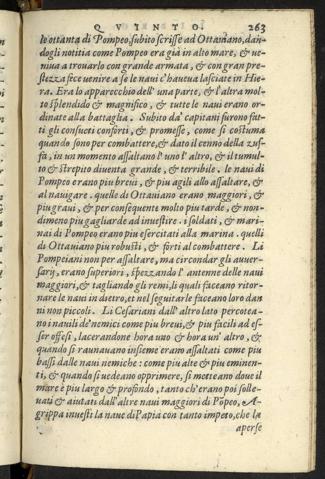 QVINTO 263
le ottanta di Pompeo, subito scrisse ad Ottauiano, dan-
dogli notitia come Pompeo era già in alto mare, & ue-
niua a trouarlo con grande armata, & con gran pre-
stezza fece uenire a se le naui c'haueua lasciate in Hie-
ra. Era lo apparecchio dell'una parte, & l'altra mol-
to splendido & magnifico, & tutte le naui erano or-
dinate alla battaglia. Subito da' capitani furono fat-
ti gli consueti conforti, & promesse, come si costuma
quando sono per combattere, & dato il cenno della zuf-
fa, in un momento assaltano l'uno l'altro, & il tumul-
to & strepito diuenta grande, & terribile. le naui di
Pompeo erano piu breui, & piu agili allo assaltare, &
al nauigare. quelle di Ottauiano erano maggiori, &
piu graui, & per consequente molto piu tarde, & non-
dimeno piu gagliarde ad inuestire. i soldati, & mari-
nai di Pompeo erano piu esercitati alla marina. quelli
di Ottauiano piu robusti, & forti al combattere. Li
Pompeiani non per assaltare, ma circondar gli auuer-
sarij, erano superiori, spezzando l'antenne delle naui
maggiori, & tagliando gli remi, li quali faceano ritor-
nare le naui in dietro, et nel seguitarle faceano loro dan
ni non piccoli. Li Cesariani dall'altro lato percotea-
no i nauili de' nemici come piu breui, & piu facili ad es-
ser offesi, lacerandone hora uno & hora un'altro, &
quando si raunauano insieme erano assaltati come piu
bassi dalle naui nemiche: come piu alte & piu eminen-
ti, & quando si uedeano opprimere, si metteano doue il
mare è piu largo & profondo, tanto ch'erano poi solle-
uati & aiutati dall'altre naui maggiori di Põpeo, A-
grippa inuestì la naue di Papia con tanto impeto, che la
aperse